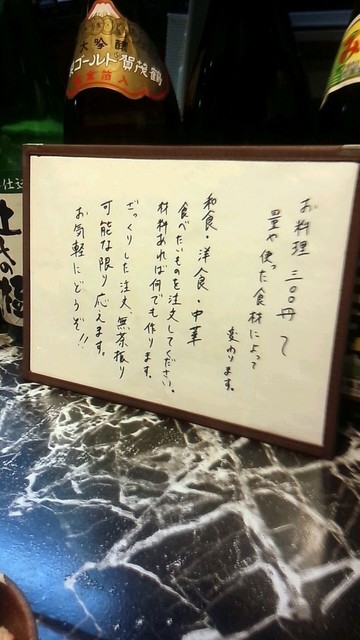 大吟醸
ゴールド賀茂鶴
金箔入
お料理 三〇〇円〜
量や使った食材によって
変わります。
和食・洋食・中華
食べたいものを注文してください。
材料あれば何でも作ります。
ざっくりした注文、無茶振り
可能な限り応えます。
お気軽にどうぞ!!